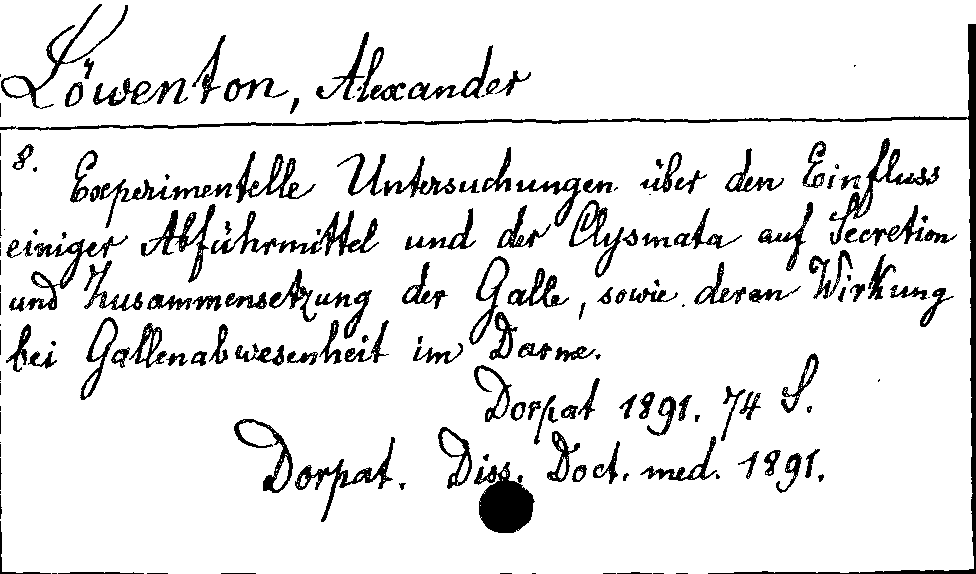 Löwenton, Alexander
8. Experimentelle Untersuchungen über den Einfluss
einiger Abführmittel und der Clysmata auf Secretion
und Zusammensetzung der Galle, sowie deren Wirkung
bei Gallenabwesenheit im Darme.
Dorpat 1891. 74 S.
Dorpat. Diss. Doct. med. 1891.